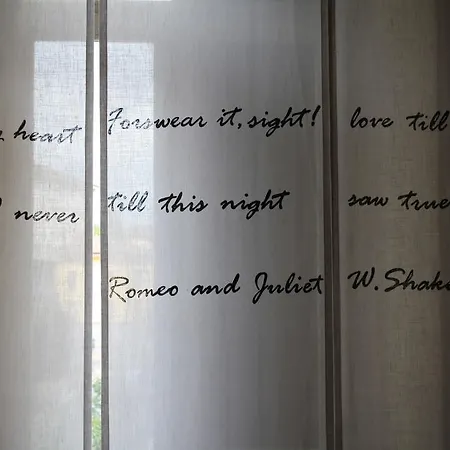 heart Forswear it, sight! love till
never till this night saw true
Romeo and Juliet W. Shake